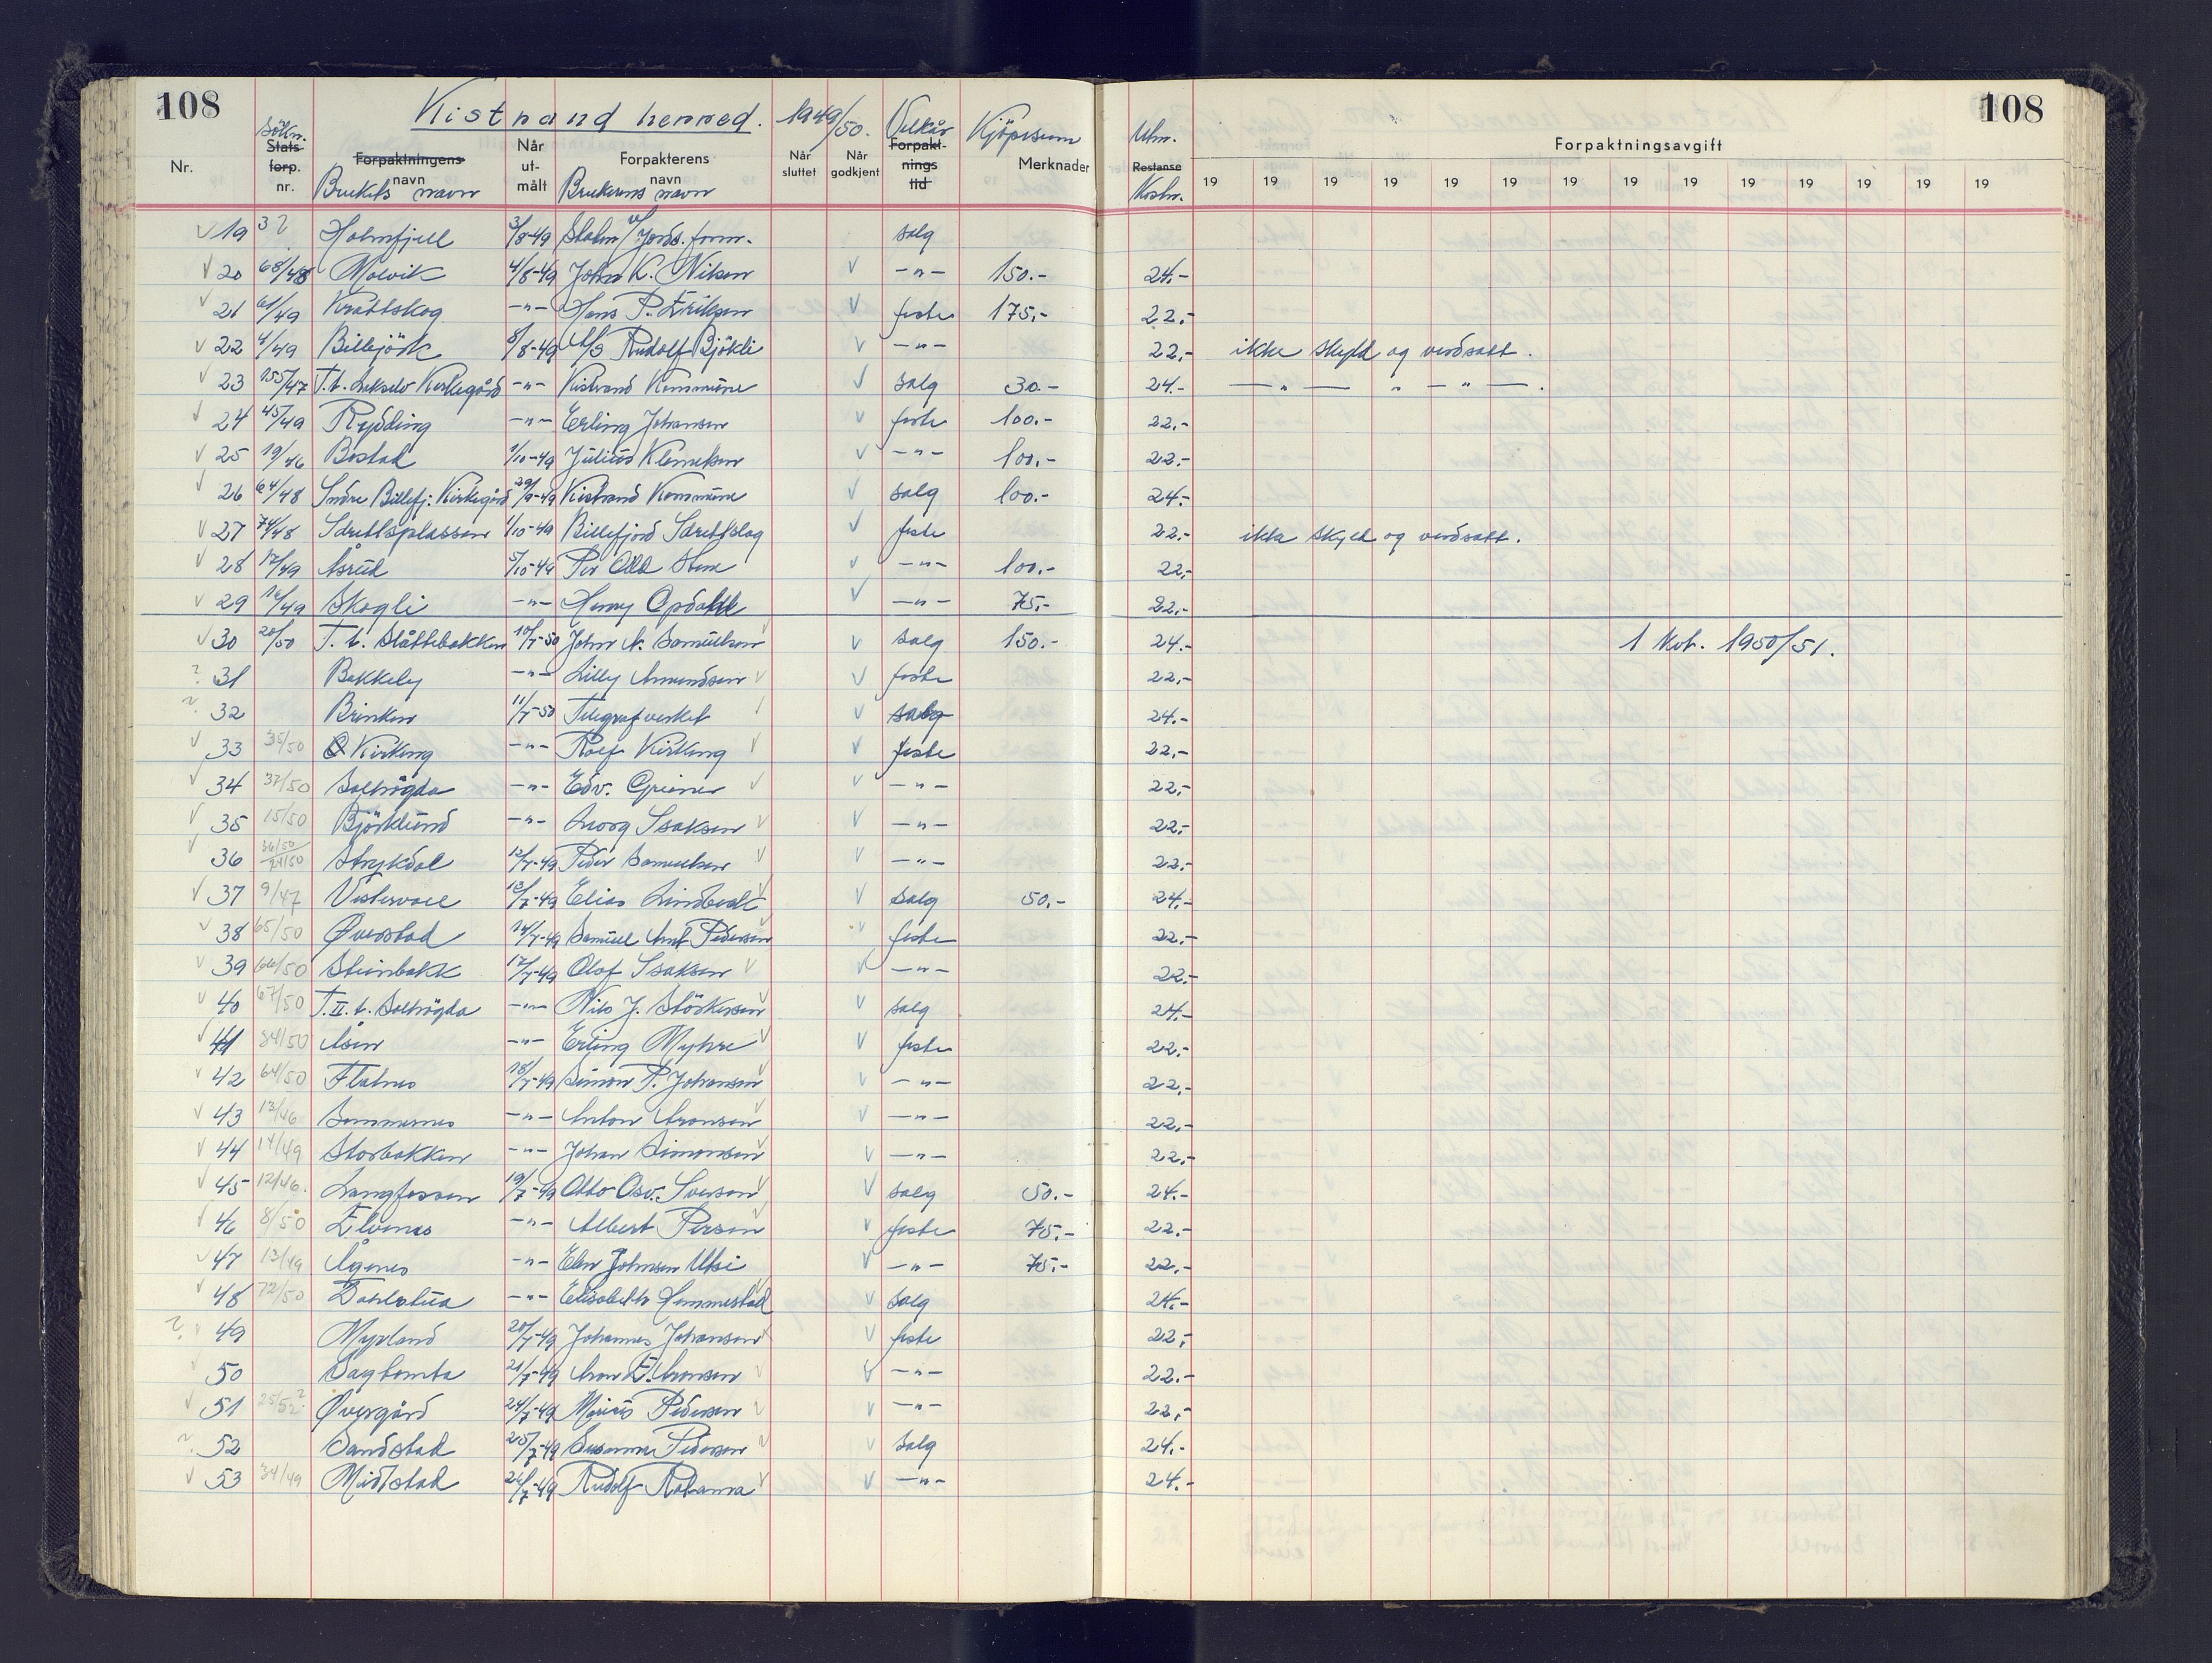 108
Kistrand herred. 1949/50.
108
Nr.
Søkn.
Stats-
forp.
nr.
Forpaktningens
navn
Brukets navn
Når
ut-
målt
Forpakterens
navn
Brukerens navn
Når
sluttet
Når
godkjent
Vilkår
Forpakt-
nings
tid
Kjöpesum
Merknader
Utm.
Restanse
Kostn.
Forpaktningsavgift
19 19 19 19 19 19 19 19 19 19 19 19 19 19
19 Holmfjell 3/8-49 Staten v/ Jords. form. salg
20 68/48 4/8-49 John K. Nilsen -"- 150.- 24.-
21 61/49 Krattskog -"- Hans P. Eriksen feste 175,- 22,-
22 4/49 8/8-49 A/S Rudolf Bjökli -"- 22,- ikke skyld og verdsatt.
23 155/47 T. t. Lakselv Kirkegård -"- Kistrand Kommune salg 30.- 24.- -"- " -"-.
24 45/49 Rydding -"- Erling Johansen feste 100.- 22,-
25 19/46 Bostad 1/10-49 Julius Klemetsen -"- 100,- 22.-
26 64/48 Indre Billefj. Kirkegård 29/9-49 Kistrand Kommune salg 100.- 24.-
27 74/48 Idrettsplassen 1/10-49 Billefjord Idrettslag feste 22.- ikke skyld og verdsatt.
28 17/49 Åsrud 5/10-49 Per Odd -"- 100.- 22,-
29 16/49 Skogli -"- Henry Opdahl -"- 75,- 22.-
30 20/50 T. t. Slåttebakken 10/7-50 John N. Samuelsen salg 150.- 24.- 1 Kvt. 1950/51.
? 31 Bakkely -"- Lilly Amundsen feste 22,-
? 32 Brinken 11/7-50 Telegrafverket salg 24.-
33 35/50 Kirkeng -"- Rolf Kirkeng feste 22,-
34 37/50 Solhögda -"- Edv. Greiner -"- 22,-
35 15/50 Björklund -"- Georg Isaksen -"- 22,-
36 36/50 Strykdal 12/7-49 Peder Samuelsen -"- 22.-
37 9/47 12/7-49 Elias Lindbæk salg 50.- 24,-
38 65/50 Øverstad 14/7-49 Samuel Pedersen feste 22,-
39 66/50 Steinbakk 17/7-49 Olaf Isaksen -"- 22.-
40 67/50 T. II. t. Solhögda -"- Nils J. Störkersen salg 24.-
41 84/50 Åsen -"- Erling Myhre feste 22,-
42 64/50 Flatnes 18/7-49 Simon P. Johansen -"- 22,-
43 13/46 Sommernes -"- Anton Aronsen -"- 22.-
44 14/49 Storbakken -"- Johan Simonsen -"- 22,-
45 12/46. Langfossen 19/7-49 Otto Osv. Iversen salg 50.- 24.-
46 8/50 Elvenes -"- Albert Persen feste 75.- 22.-
47 13/49 Ågenes -"- Elen Johnsen Utsi -"- 75,- 22,-
48 72/50 Dahlstua -"- Elisabeth Hemmestad salg 24.-
? 49 Myrland 20/7-49 Johannes Johansen feste 22,-
50 Sagtomta 21/7-49 Aron E. Aronsen -"- 22.-
51 25/52? Øvergård 24/7-49 Marius Pedersen -"- 22,-
? 52 Sandstad 25/7-49 Susanne Pedersen salg 24.-
53 34/49 Midtstad 26/7-49 Rudolf -"- 24.-